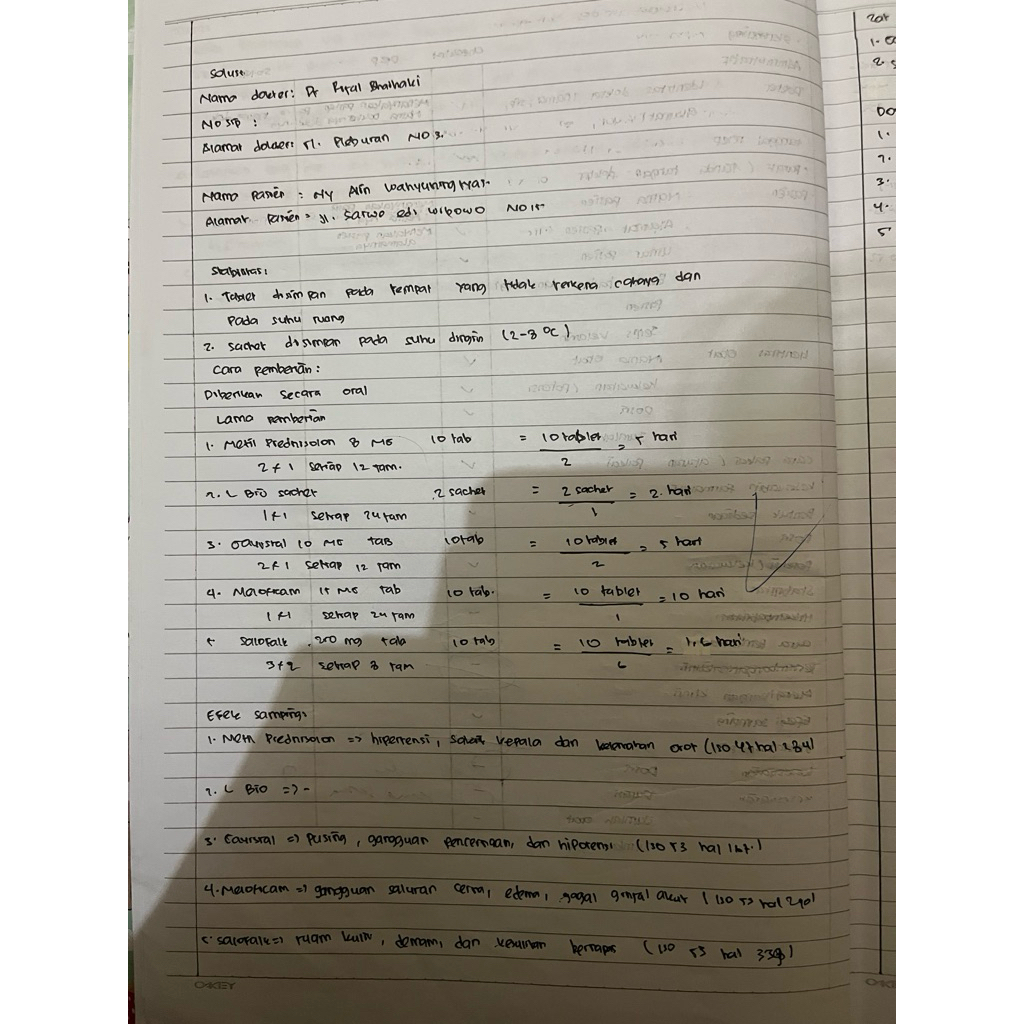 Solusi
Nama dokter: Dr
No SIP :
Alamat dokter: Jl. Pleburan NO 3.
Nama Pasien : Ny Alin Wahyuningtyas.
Alamat Pasien = Jl. Sarwo edi wibowo NO 15
Stabilitas:
1. Tablet disimpan pada tempat yang tidak terkena cahaya dan
pada suhu ruang
2. sachet disimpan pada suhu dingin (2-8 °C)
Cara pemberian:
Diberikan secara oral
Lama pemberian
1. Metil Prednisolon 8 MG 10 tab = 10 tablet / 2 = 5 hari
2x1 setiap 12 jam.
2. L Bio sachet 2 sachet = 2 sachet / 1 = 2 hari
1x1 setiap 24 jam
3. 10 MG tab 10 tab = 10 tablet / 2 = 5 hari
2x1 setiap 12 jam
4. Meloxicam 15 MG tab 10 tab. = 10 tablet / 1 = 10 hari
1x1 setiap 24 jam
5 Salofalk 250 mg tab 10 tab = 10 tablet / 6 = 1,6 hari
3x2 setiap 8 jam
Efek samping:
1. Metil Prednisolon => hipertensi, sakit kepala dan kelemahan otot (ISO 47 hal 284)
2. L Bio => -
3. => Pusing, gangguan pencernaan, dan hipotensi (ISO 53 hal
4. Meloxicam => gangguan saluran cerna, edema, gagal ginjal akut (ISO 53 hal 290)
5. Salofalk => ruam kulit, demam, dan (ISO 53 hal
OKEY